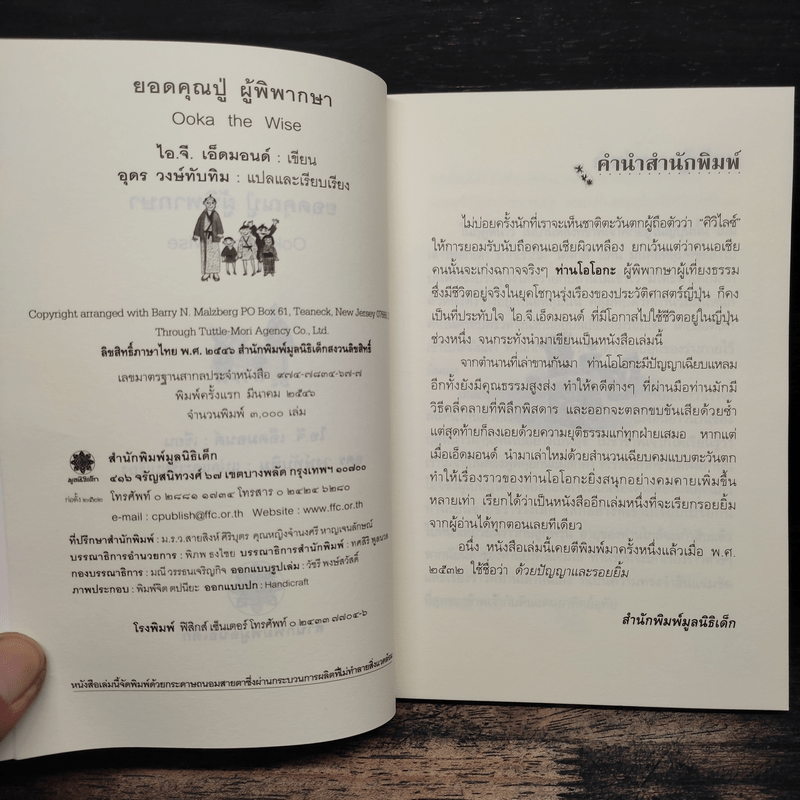 ยอดคุณปู่ ผู้พิพากษา
Ooka the Wise
ไอ.จี. เอ็ดมอนด์ : เขียน
อุดร วงษ์ทับทิม : แปลและเรียบเรียง
Copyright arranged with Barry N. Malzberg PO Box 61, Teaneck, New Jersey
Through Tuttle-Mori Agency Co., Ltd.
ลิขสิทธิ์ภาษาไทย พ.ศ. ๒๕๔๖ สำนักพิมพ์มูลนิธิเด็กสงวนลิขสิทธิ์
เลขมาตรฐานสากลประจำหนังสือ ๙๗๔-๗๘๓๔-๖๗-๗
พิมพ์ครั้งแรก มีนาคม ๒๕๔๖
จำนวนพิมพ์ ๓,๐๐๐ เล่ม
สำนักพิมพ์มูลนิธิเด็ก
๔๑๖ จรัญสนิทวงศ์ ๖๗ เขตบางพลัด กรุงเทพฯ ๑๐๗๐๐
มูลนิธิเด็ก
ก่อตั้ง ๒๕๒๒
โทรศัพท์ ๐ ๒๘๘๑ ๑๗๓๔ โทรสาร ๐ ๒๔๒๔ ๖๒๘๐
e-mail : cpublish@ffc.or.th Website : www.ffc.or.th
ที่ปรึกษาสำนักพิมพ์ : ม.ร.ว.สายสิงห์ ศิริบุตร คุณหญิงจำนงศรี หาญเจนลักษณ์
บรรณาธิการอำนวยการ : พิภพ ธงไชย บรรณาธิการสำนักพิมพ์ : ทศสิริ พูลนวล
กองบรรณาธิการ : มณี วรรธนเจริญกิจ ออกแบบรูปเล่ม : วัชรี พงษ์สวัสดิ์
ภาพประกอบ : พิมพ์จิต ตปนียะ ออกแบบปก : Handicraft
โรงพิมพ์ ฟิสิกส์ เซ็นเตอร์ โทรศัพท์ ๐ ๒๔๓๓ ๗๗๐๔-๖
หนังสือเล่มนี้จัดพิมพ์ด้วยกระดาษถนอมสายตาซึ่งผ่านกระบวนการผลิตที่ไม่ทำลายสิ่งแวดล้อม
คำนำสำนักพิมพ์
ไม่บ่อยครั้งนักที่เราจะเห็นชาติตะวันตกผู้ถือตัวว่า "ศิวิไลซ์"
ให้การยอมรับนับถือคนเอเชียผิวเหลือง ยกเว้นแต่ว่าคนเอเชีย
คนนั้นจะเก่งฉกาจจริงๆ ท่านโอโอกะ ผู้พิพากษาผู้เที่ยงธรรม
ซึ่งมีชีวิตอยู่จริงในยุคโชกุนรุ่งเรืองของประวัติศาสตร์ญี่ปุ่น ก็คง
เป็นที่ประทับใจ ไอ.จี.เอ็ดมอนด์ ที่มีโอกาสไปใช้ชีวิตอยู่ในญี่ปุ่น
ช่วงหนึ่ง จนกระทั่งนำมาเขียนเป็นหนังสือเล่มนี้
จากตำนานที่เล่าขานกันมา ท่านโอโอกะมีปัญญาเฉียบแหลม
อีกทั้งยังมีคุณธรรมสูงส่ง ทำให้คดีต่างๆ ที่ผ่านมือท่านมักมี
วิธีคลี่คลายที่พิลึกพิสดาร และออกจะตลกขบขันเสียด้วยซ้ำ
แต่สุดท้ายก็ลงเอยด้วยความยุติธรรมแก่ทุกฝ่ายเสมอ หากแต่
เมื่อเอ็ดมอนด์ นำมาเล่าใหม่ด้วยสำนวนเฉียบคมแบบตะวันตก
ทำให้เรื่องราวของท่านโอโอกะยิ่งสนุกอย่างคมคายเพิ่มขึ้น
หลายเท่า เรียกได้ว่าเป็นหนังสืออีกเล่มหนึ่งที่จะเรียกรอยยิ้ม
จากผู้อ่านได้ทุกตอนเลยทีเดียว
อนึ่ง หนังสือเล่มนี้เคยตีพิมพ์มาครั้งหนึ่งแล้วเมื่อ พ.ศ.
๒๕๓๒ ใช้ชื่อว่า ด้วยปัญญาและรอยยิ้ม
สำนักพิมพ์มูลนิธิเด็ก